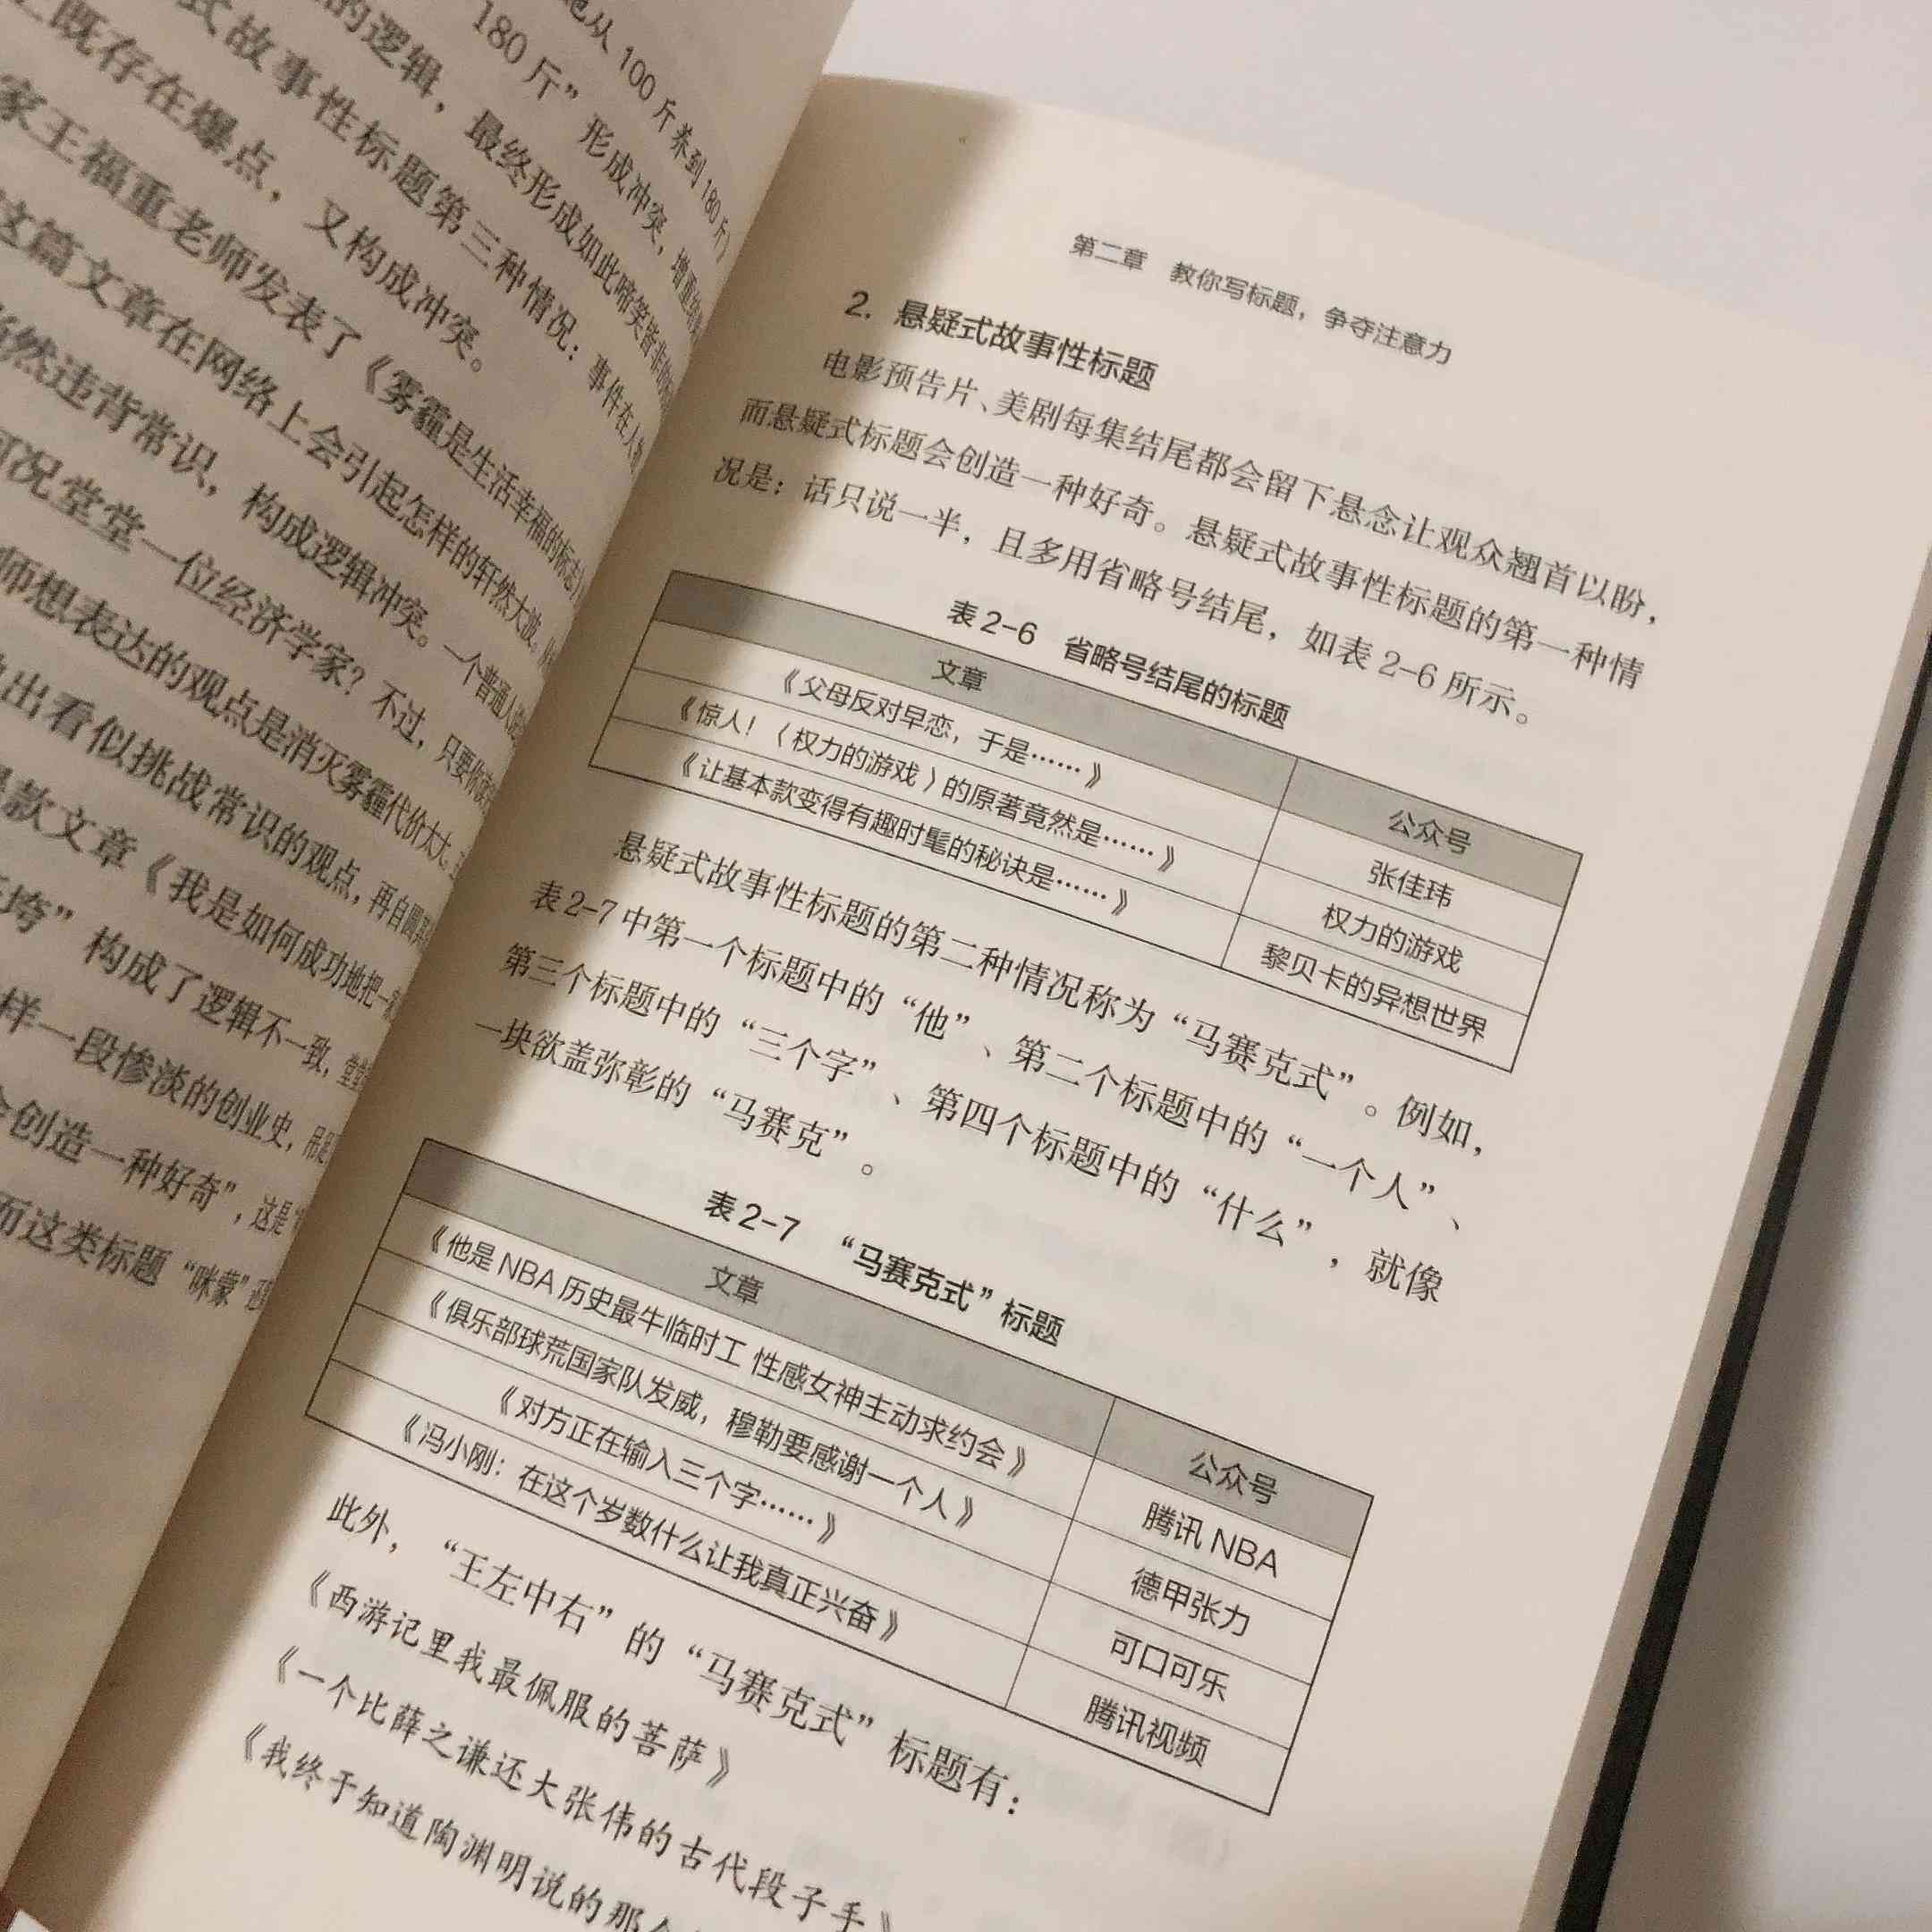 他从 100 斤养到 180 斤）
180 斤”形成冲突，增重
的逻辑，最终形成如此啼笑皆非的
式故事性标题第三种情况：事件在人
上既存在爆点，又构成冲突。
家王福重老师发表了《雾霾是生活幸福的标志》
这篇文章在网络上会引起怎样的轩然大波。
竟然违背常识，构成逻辑冲突。一个普通人
何况堂堂一位经济学家？不过，只要你
师想表达的观点是消灭雾霾代价太大
出看似挑战常识的观点，再自圆其
爆款文章《我是如何成功地把一家
垮”构成了逻辑不一致，堂
样一段惨淡的创业史，
创造一种好奇”，这是
而这类标题“咪蒙”
第二章 教你写标题，争夺注意力
2. 悬疑式故事性标题
电影预告片、美剧每集结尾都会留下悬念让观众翘首以盼，
而悬疑式标题会创造一种好奇。悬疑式故事性标题的第一种情
况是：话只说一半，且多用省略号结尾，如表 2-6 所示。
表 2-6 省略号结尾的标题
文章 公众号
《父母反对早恋，于是……》 张佳玮
《惊人！〈权力的游戏〉的原著竟然是……》 权力的游戏
《让基本款变得有趣时髦的秘诀是……》 黎贝卡的异想世界
悬疑式故事性标题的第二种情况称为“马赛克式”。例如，
表 2-7 中第一个标题中的“他”、第二个标题中的“一个人”、
第三个标题中的“三个字”、第四个标题中的“什么”，就像
一块欲盖弥彰的“马赛克”。
表 2-7 “马赛克式”标题
文章 公众号
《他是 NBA 历史最牛临时工 性感女神主动求约会》 腾讯 NBA
《俱乐部球荒国家队发威，穆勒要感谢一个人》 德甲张力
《对方正在输入三个字……》 可口可乐
《冯小刚：在这个岁数什么让我真正兴奋》 腾讯视频
此外，“王左中右”的“马赛克式”标题有：
《西游记里我最佩服的菩萨》
《一个比薛之谦还大张伟的古代段子手》
《我终于知道陶渊明说的那个